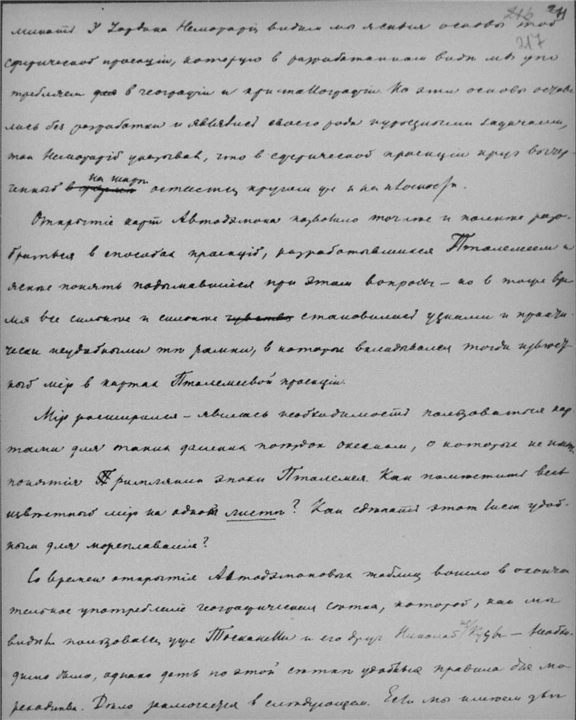 246 241
217
миналъ У Iордана Неморарiя видимъ мы ясныя основы той
сферической проекцiи, которую в разработанном видѣ мы упо
требляем в географiи и кристаллографiи. Но эти основы остава
лись без разработки и являлись своего рода курьезными задачами,
так Неморарiй указывал, что в сферической проекцiи круг вычер
ченный на шарѣ останется кругом же и на плоскости.
Открытiе карт Автодэмона позволило точнѣе и полнѣе разо
браться в способах проекцiй, разрабатывавшихся Птолемеем и
яснѣе понять подымавшiеся при этом вопросы – но в то же вре
мя все сильнѣе и сильнѣе чувство становились узкими и практи
чески неудобными тѣ рамки, в которые вкладывался тогда извѣст
ный мiр в картах Птолемеевой проекцiи.
Мiр расширился – явилась необходимость пользоваться кар
тами для таких далеких поѣздок океаном, о которых не имѣли
понятiя римляне эпохи Птолемея. Как помѣстить весь
извѣстный мiр на одном листѣ? Как сдѣлать этот лист удоб
ным для мореплаванiя?
Со времен открытiя Автодэмоновых таблиц вошло в оконча
тельное употребленiе географическая сѣтка, которой, как мы
видѣли пользовались уже Тосканелли и его друг Николай Кузы – Необхо
димо было, однако дать по этой сѣткѣ удобные правила для мо
реходства. Дѣло заключается в слѣдующем. Если мы имѣем двѣ